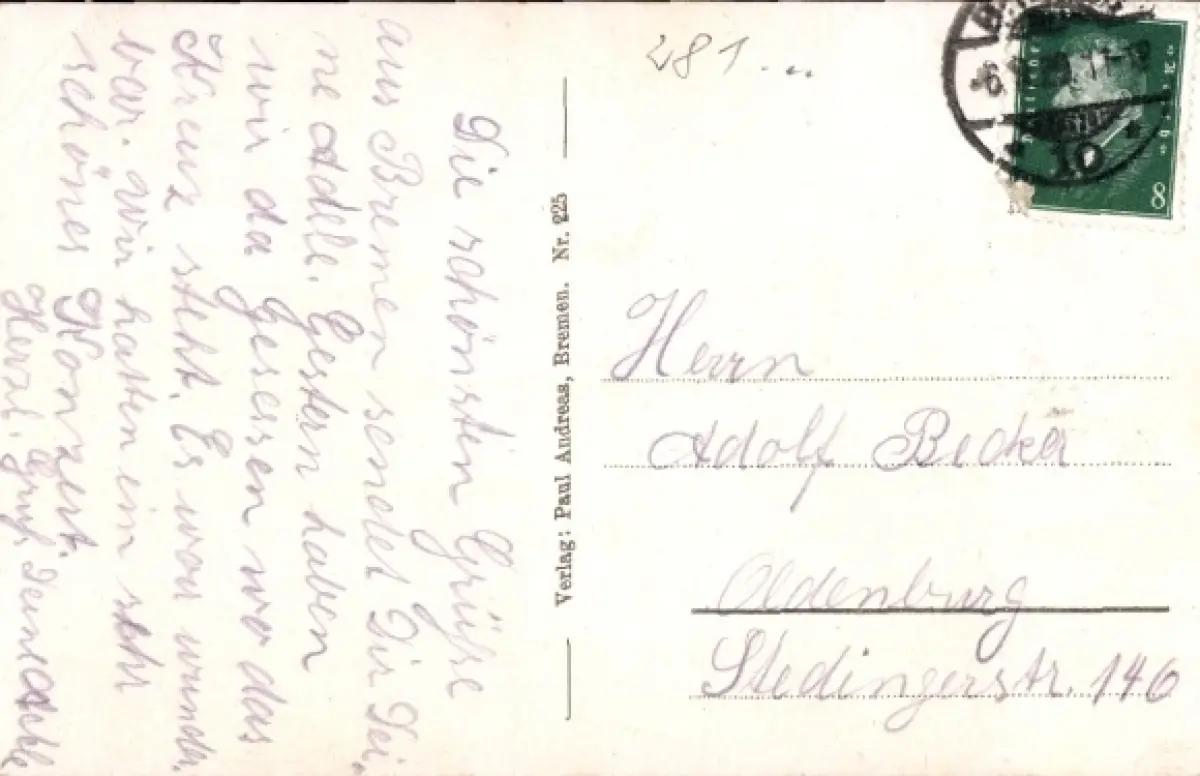 281...
Die schönsten Grüße
aus Bremen sendet Dir Dei-
ne Adele. Gestern haben
wir da Gesessen wo das
Kreuz steht. Es war wunder
bar. Wir hatten ein sehr
schönes Konzert.
Herzl. Gruß. Deine Adele
Verlag: Paul Andreas, Bremen. Nr. 225
8
10
Herrn
Adolf Becker
Oldenburg
Stedingerstr. 146